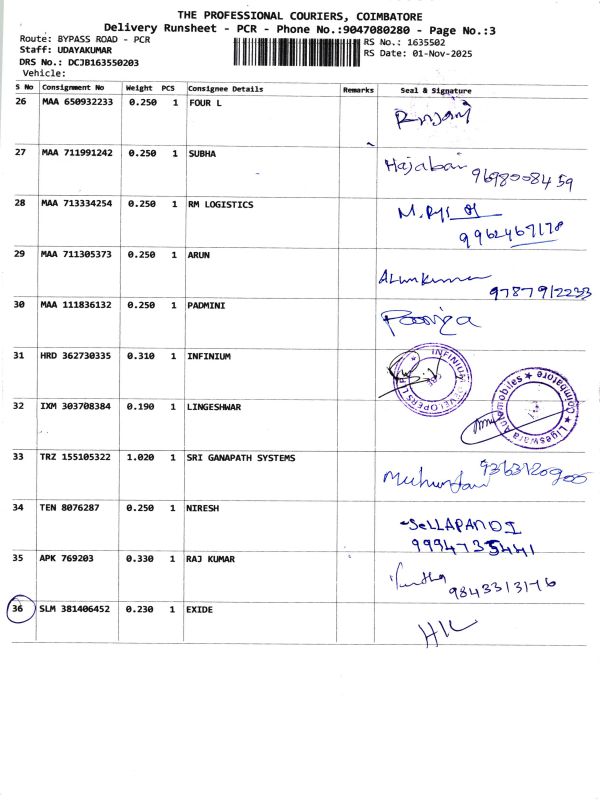 THE PROFESSIONAL COURIERS, COIMBATORE
Delivery Runsheet - PCR - Phone No.:9047080280 - Page No.:3
Route: BYPASS ROAD - PCR RS No.: 1635502
Staff: UDAYAKUMAR RS Date: 01-Nov-2025
DRS No.: DCJB163550203
Vehicle:
S No Consignment No Weight PCS Consignee Details Remarks Seal & Signature
26 MAA 650932233 0.250 1 FOUR L
27 MAA 711991242 0.250 1 SUBHA Hajabai 9698008459
28 MAA 713334254 0.250 1 RM LOGISTICS
9962467178
29 MAA 711305373 0.250 1 ARUN Arunkumar
9787912233
30 MAA 111836132 0.250 1 PADMINI
31 HRD 362730335 0.310 1 INFINIUM INFINIUM DEVELOPERS LLP
32 IXM 303708384 0.190 1 LINGESHWAR Ligeswara Automobiles ★ Coimbatore ★
33 TRZ 155105322 1.020 1 SRI GANAPATH SYSTEMS 9363120900
34 TEN 8076287 0.250 1 NIRESH SELLAPANDI
9994735441
35 APK 769203 0.330 1 RAJ KUMAR
9843313176
36 SLM 381406452 0.230 1 EXIDE